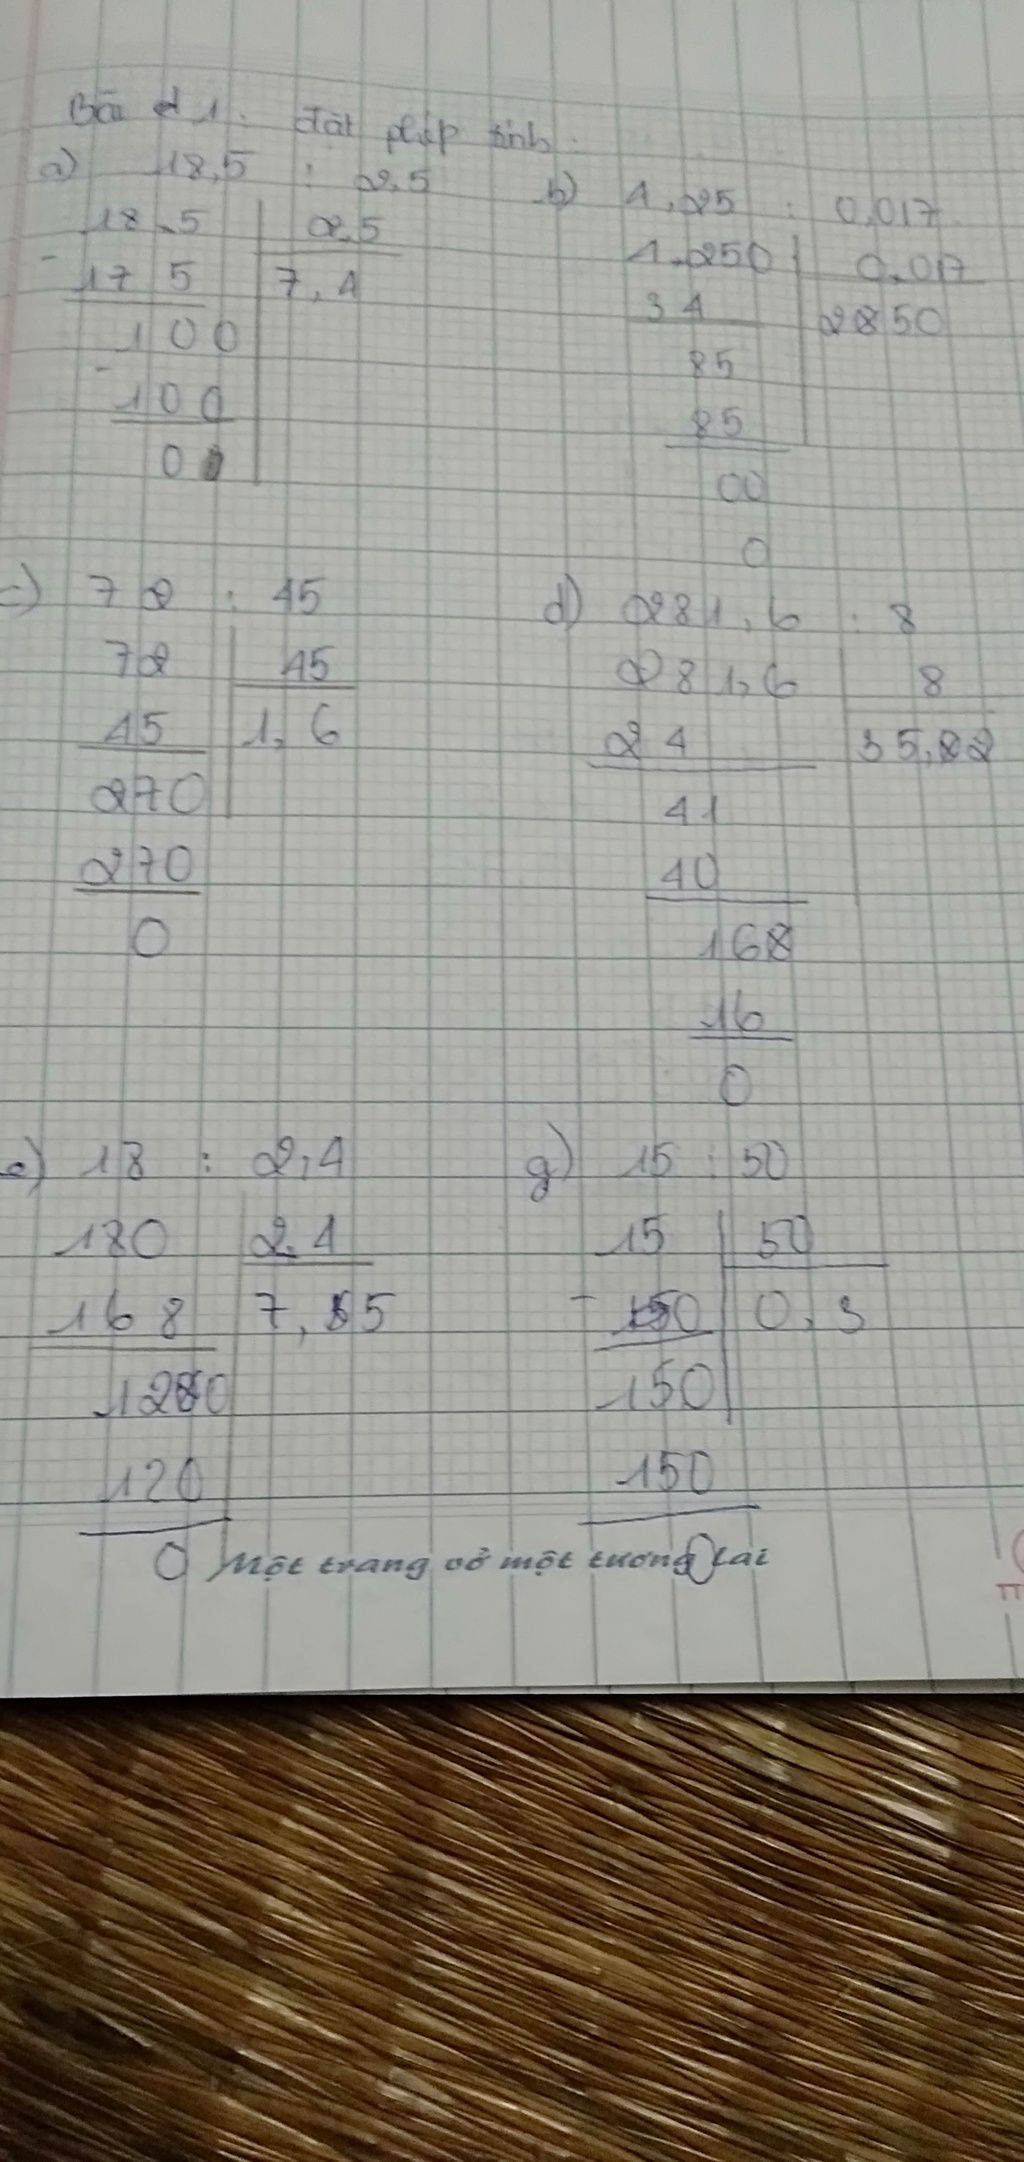 Bài 1. Đặt phép tính.
a) 18,5 : 2,5
b) 4,25 : 0,017
18,5 2,5
4,250 0,017
- 17 5 7,4
34 2850
100
85
- 100
85
0
00
0
c) 72 : 45
d) 281,6 : 8
72 45
281,6 8
45 1,6
24 35,22
270
41
270
40
0
168
16
0
e) 18 : 2,4
g) 15 : 50
180 2,4
15 50
168 7,55
- 150 0,3
1280
150
120
150
0
0
Một trang vở một tương lai